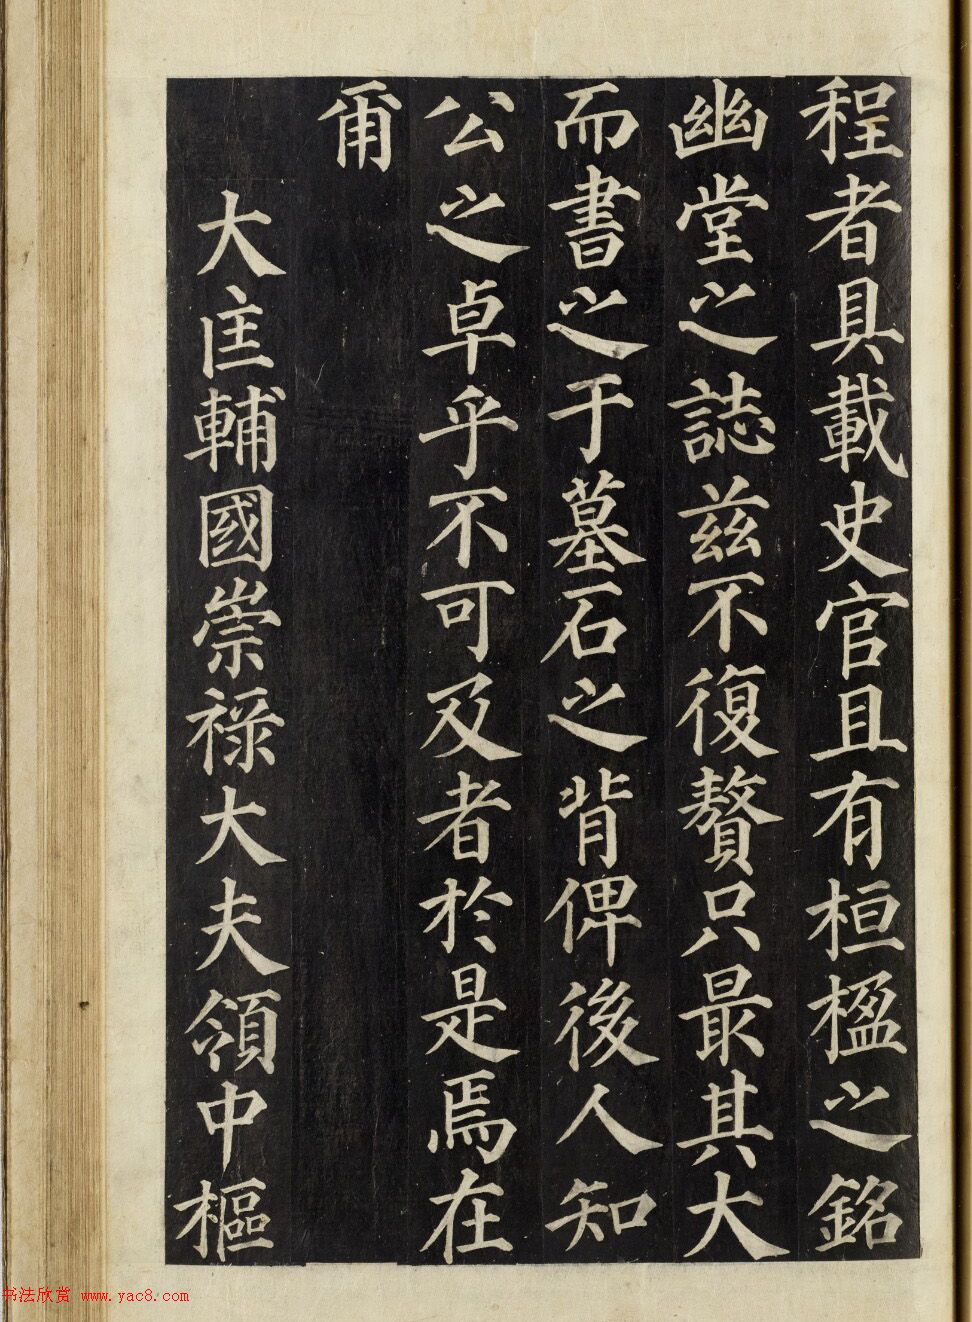 程者具載史官且有桓楹之銘
幽堂之誌兹不復贅只最其大
而書之于墓石之背俾後人知
公之卓乎不可及者於是焉在
甭
大匡輔國崇祿大夫領中樞
书法欣赏 www.yac8.com